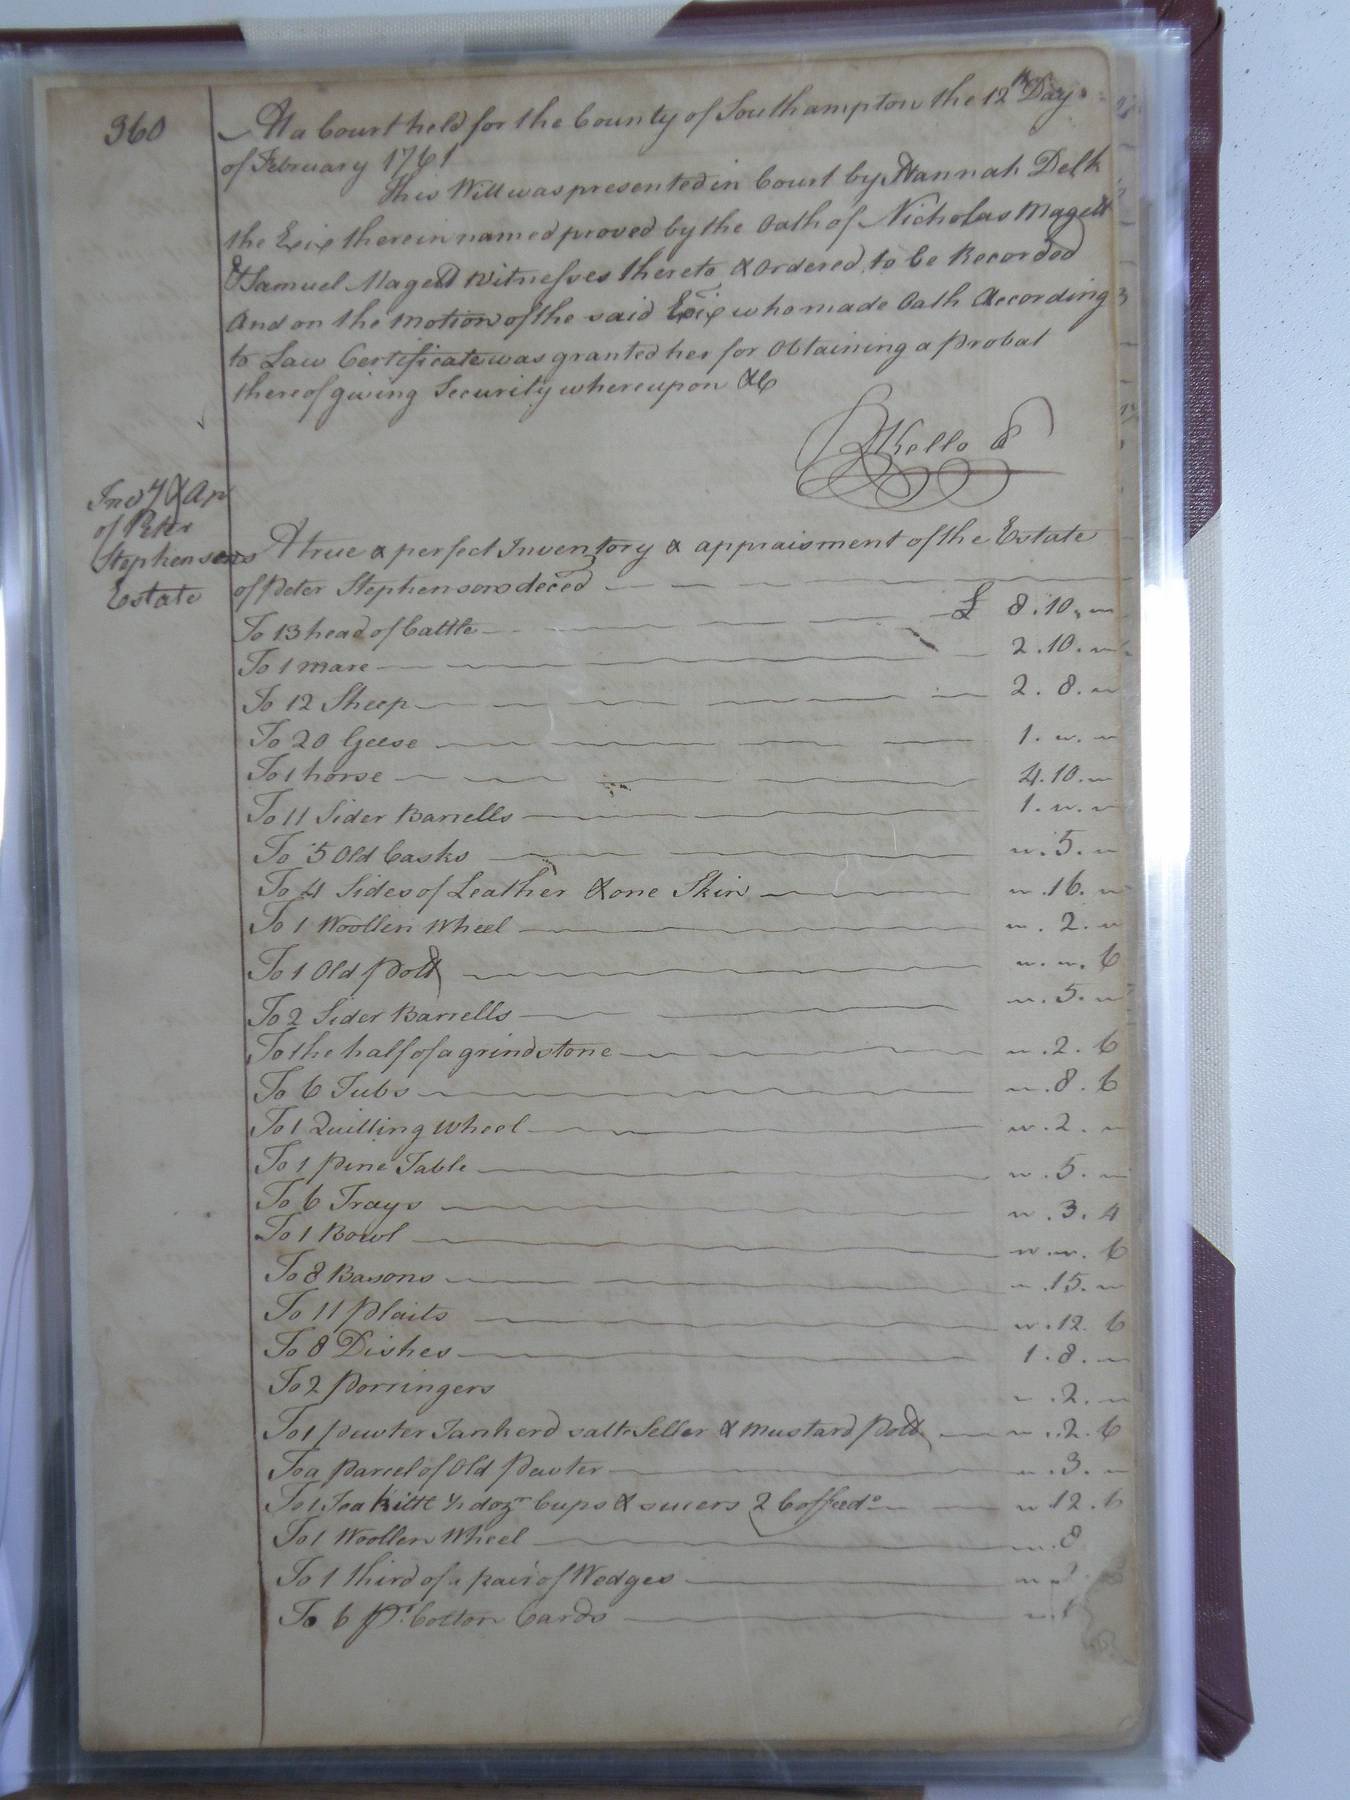 360
At a Court held for the County of Southampton the 12th Day
of February 1761
This Will was presented in Court by Hannah Delk
the Exix therein named proved by the Oath of Nicholas Magett
& Samuel Magett Witnesses thereto & Ordered to be Recorded
And on the motion of the said Exix who made Oath According
to Law Certificate was granted her for Obtaining a probat
thereof giving Security whereupon &c
Kello
Invy & Ap
of Peter
Stephensons
Estate
A true & perfect Inventory & appraisment of the Estate
of Peter Stephenson deced
To 13 head of Cattle £ 8.10."
To 1 mare 2.10."
To 12 Sheep 2.8."
To 20 Geese 1."."
To 1 horse 4.10."
To 11 Sider Barrells 1."."
To 5 Old Casks ".5."
To 4 Sides of Leather & one Skin ".16."
To 1 Woollen Wheel ".2."
To 1 Old pott ".".6
To 2 Sider Barrells ".5."
To the half of a grindstone ".2.6
To 6 Tubs ".8.6
To 1 Quilling Wheel ".2."
To 1 pine Table ".5."
To 6 Trays ".3.4
To 1 Bowl ".".6
To 8 Basons ".15."
To 11 plaits ".12.6
To 8 Dishes 1.8."
To 2 porringers ".2."
To 1 pewter Tankerd salt Seller & mustard pott ".2.6
To a parcel of Old pewter ".3."
To 1 Tea kittt ½ dozn Cups & sucers 2 Coffee do ".12.6
To 1 Woollen Wheel ".8
To 1 third of a pair of Wedges
To 6 pr Cotton Cards